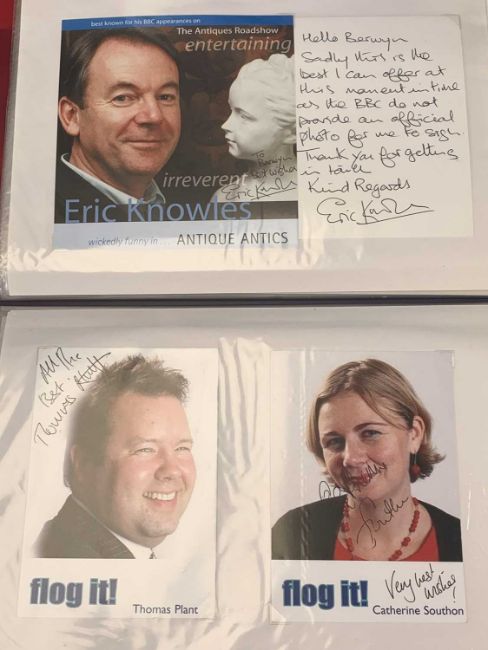 best known for his BBC appearances on
The Antiques Roadshow
entertaining
irreverent
To
Berwyn
Best Wishes
Eric Knowles
Eric Knowles
wickedly funny in... ANTIQUE ANTICS
Hello Berwyn
Sadly this is the
best I can offer at
this moment in time
as the BBC do not
provide an official
photo for me to sign.
Thank you for getting
in touch
Kind Regards
Eric Knowles
All The
Best
Thomas Plant
flog it!
Thomas Plant
flog it!
Very best
wishes
Catherine Southon